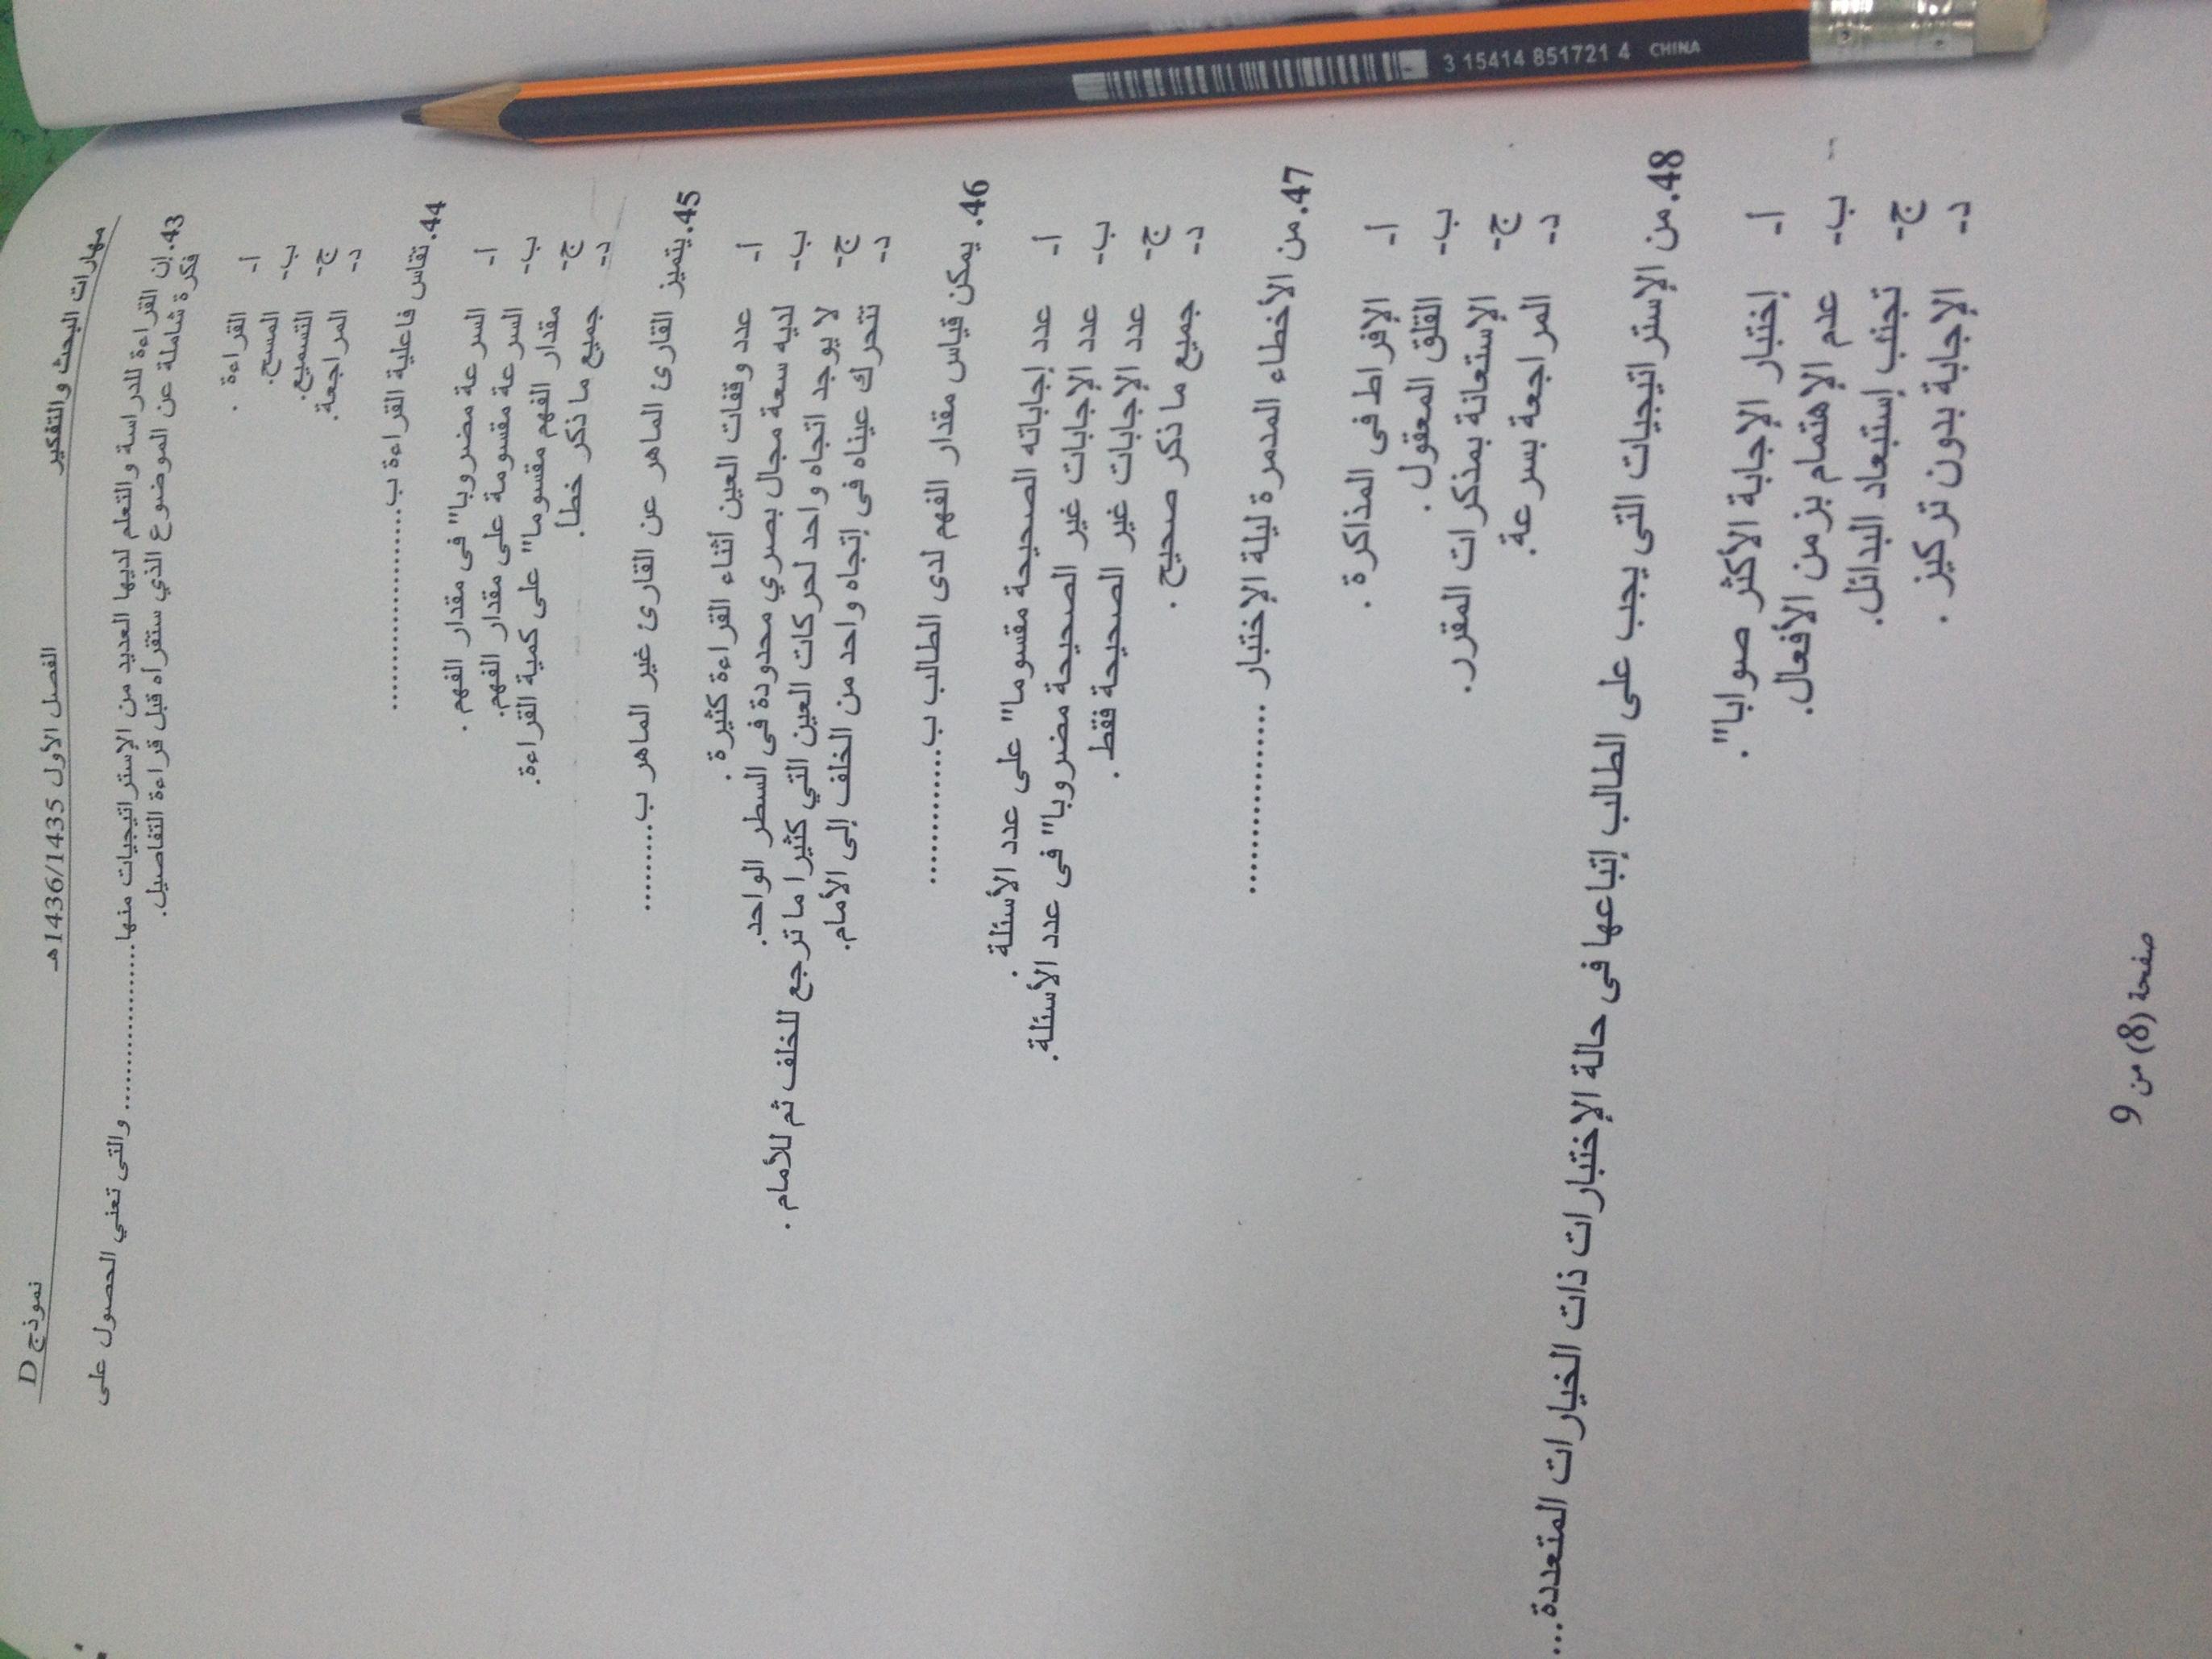 مهارات البحث والتفكير الفصل الأول 1436/1435هـ نموذج D
43. إن القراءة للدراسة والتعلم لديها العديد من الإستراتيجيات منها.................. والتى تعني الحصول على
فكرة شاملة عن الموضوع الذي ستقرأه قبل قراءة التفاصيل.
أ- القراءة .
ب- المسح.
ج- التسميع.
د- المراجعة.
44. تقاس فاعلية القراءة ب......................
أ- السرعة مضروبا" فى مقدار الفهم .
ب- السرعة مقسومة على مقدار الفهم.
ج- مقدار الفهم مقسوما" على كمية القراءة.
د- جميع ما ذكر خطأ.
45. يتميز القارئ الماهر عن القارئ غير الماهر ب..........
أ- عدد وقفات العين أثناء القراءة كثيرة .
ب- لديه سعة مجال بصري محدودة فى السطر الواحد.
ج- لا يوجد اتجاه واحد لحركات العين التي كثيرا ما ترجع للخلف ثم للأمام .
د- تتحرك عيناه فى إتجاه واحد من الخلف إلى الأمام.
46. يمكن قياس مقدار الفهم لدى الطالب ب..............
أ- عدد إجاباته الصحيحة مقسوما" على عدد الأسئلة .
ب- عدد الإجابات غير الصحيحة مضروبا" فى عدد الأسئلة.
ج- عدد الإجابات غير الصحيحة فقط .
د- جميع ما ذكر صحيح .
47. من الأخطاء المدمرة ليلة الإختبار ..................
أ- الإفراط فى المذاكرة .
ب- القلق المعقول .
ج- الإستعانة بمذكرات المقرر.
د- المراجعة بسرعة.
48. من الإستراتيجيات التى يجب على الطالب إتباعها فى حالة الإختبارات ذات الخيارات المتعددة...
أ- إختبار الإجابة الأكثر صوابا" .
ب- عدم الإهتمام بزمن الأفعال.
ج- تجنب إستبعاد البدائل.
د- الإجابة بدون تركيز .
صفحة (8) من 9
3 15414 851721 4 CHINA